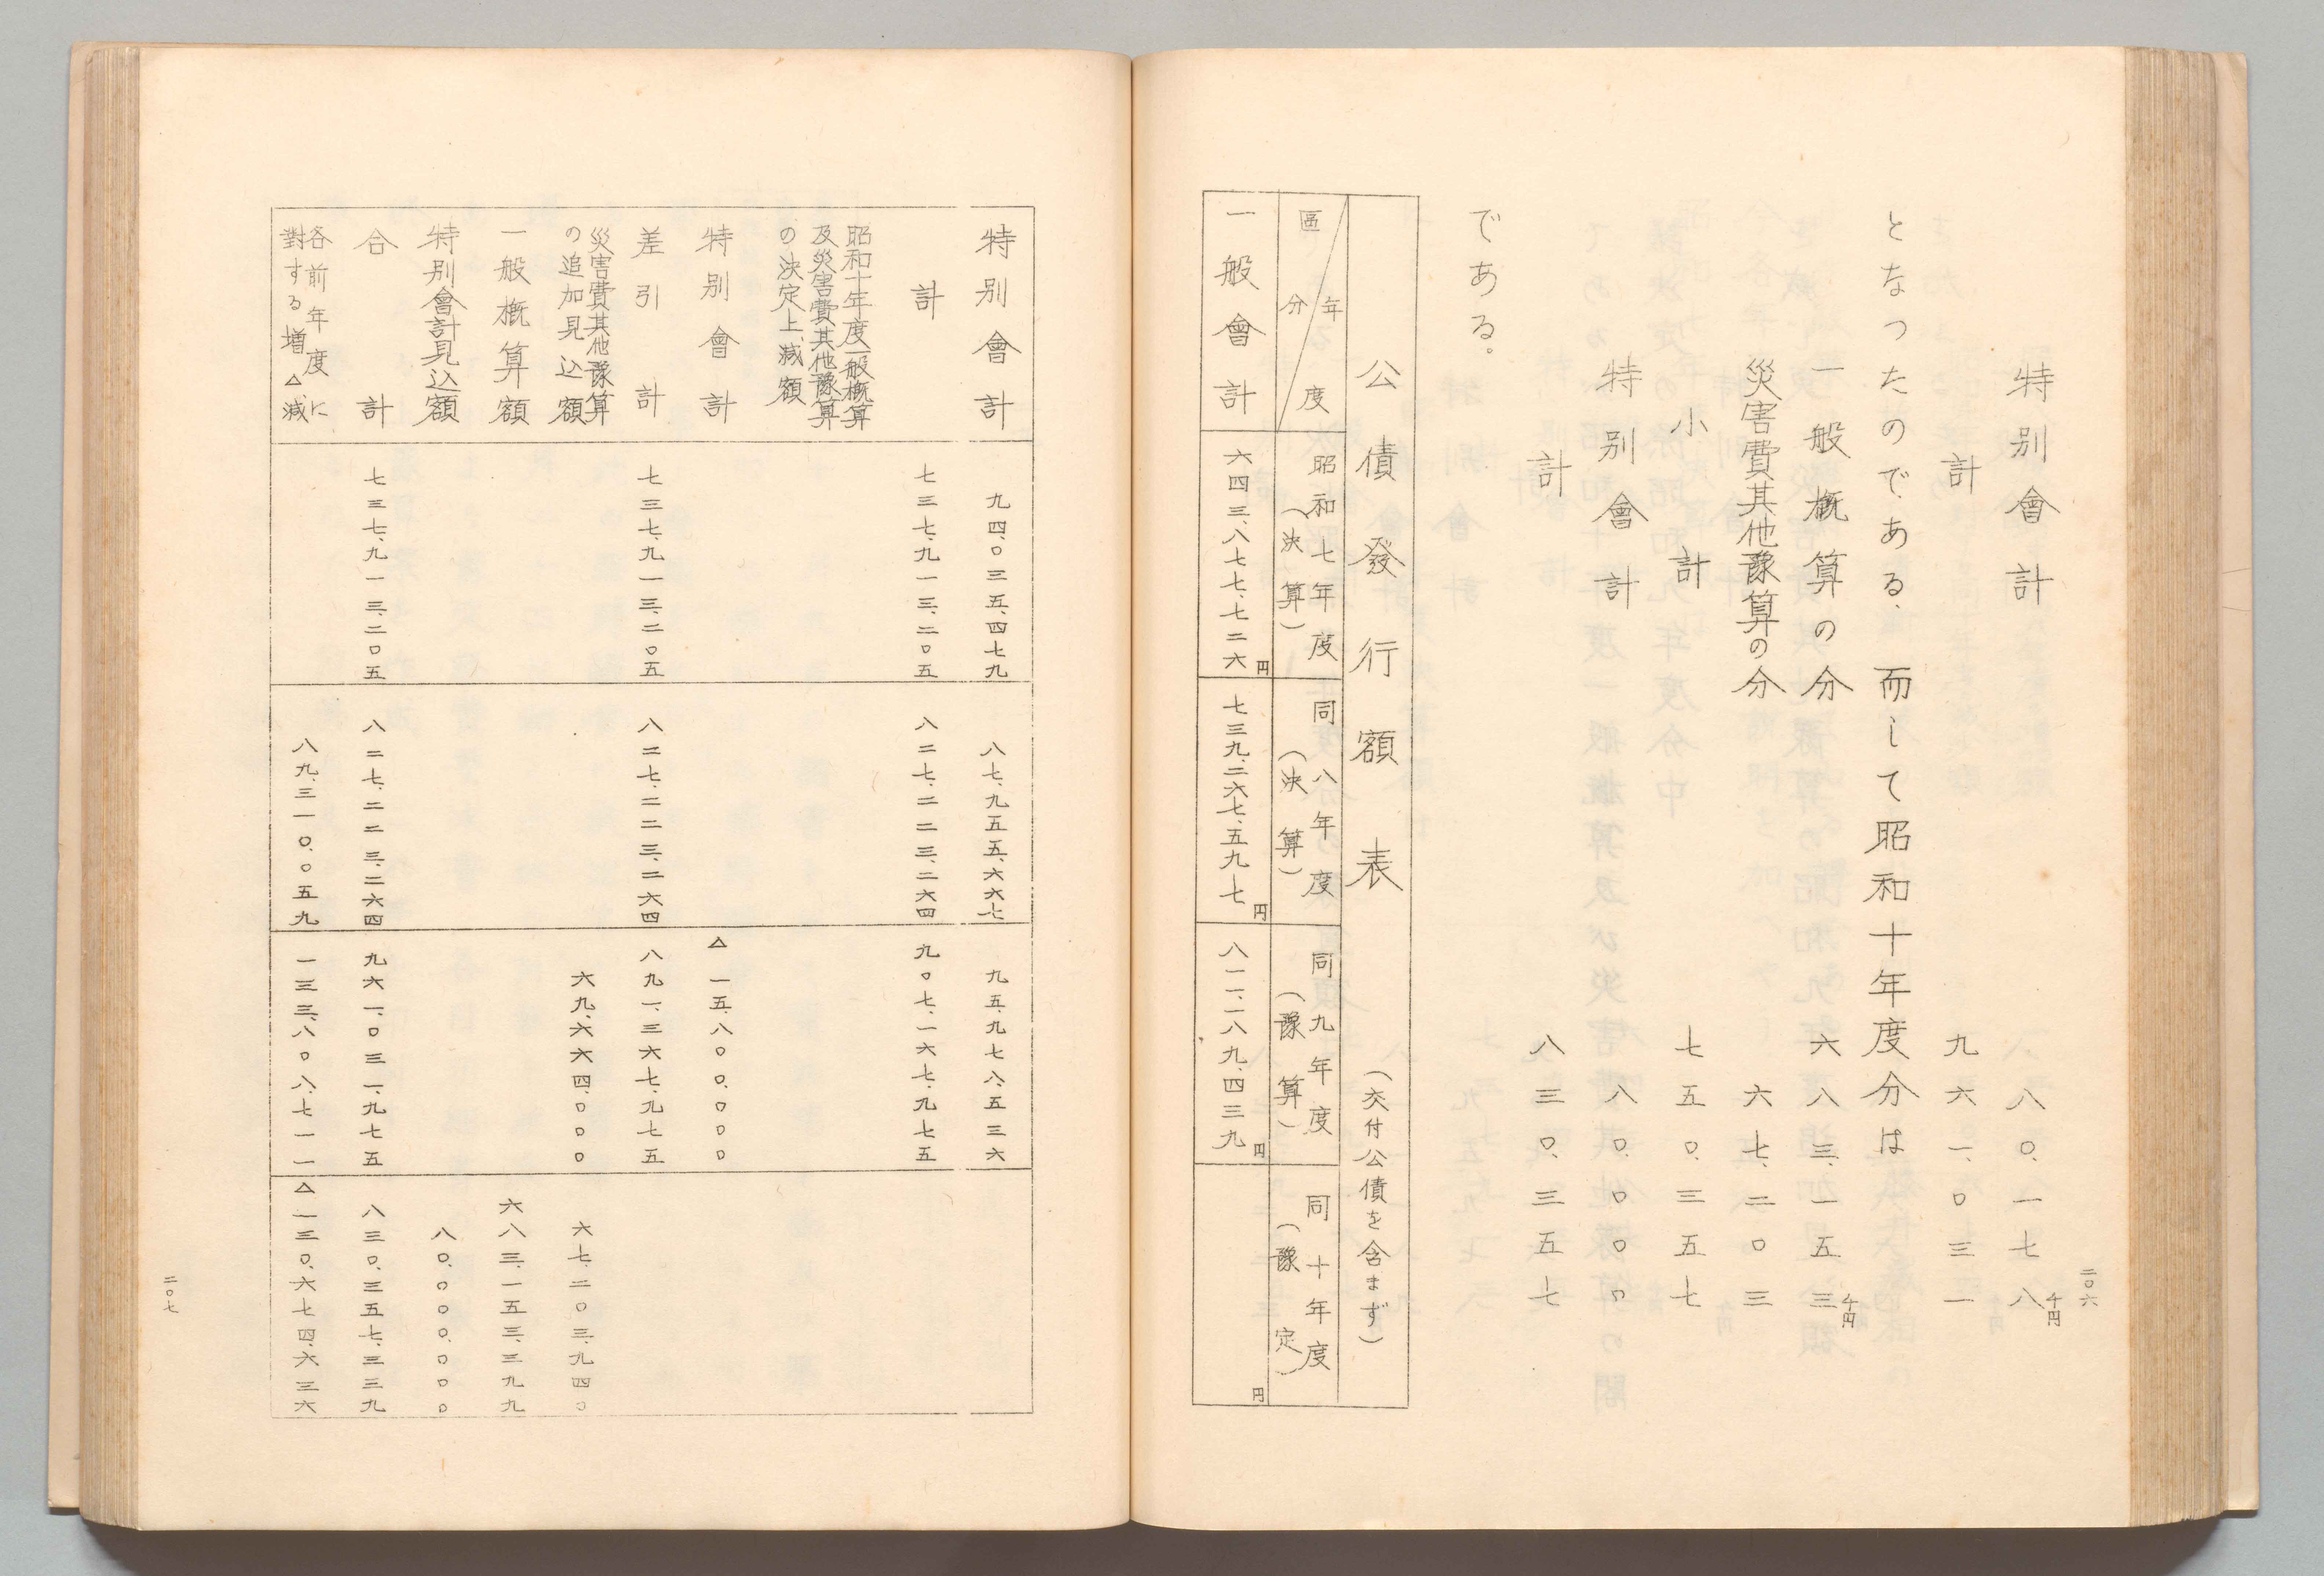 二〇六
特別會計 八〇、一七八千円
計 九六一、〇三一
となつたのである、而して昭和十年度分は
一般概算の分 六八三、一五三千円
災害費其他豫算の分 六七、二〇三
小計 七五〇、三五七
特別會計 八〇、〇〇〇
計 八三〇、三五七
である。
公債發行額表 (交付公債を含まず)
年度 昭和七年度 同八年度 同九年度 同十年度
區分 (決算) (決算) (豫算) (豫定)
一般會計 六四三、八七七、七二六円 七三九、二六七、五九七円 八一一、一八九、四三九円 円
特別會計 九四、〇三五、四七九 八七、九五五、六六七 九五、九七八、五三六
計 七三七、九一三、二〇五 八二七、二二三、二六四 九〇七、一六七、九七五
昭和十年度一般概算
及災害費其他豫算
の決定上、減額
特別會計 △一五、八〇〇、〇〇〇
差引計 七三七、九一三、二〇五 八二七、二二三、二六四 八九一、三六七、九七五
災害費其他豫算
の追加見込額 六九、六六四、〇〇〇 六七、二〇三、九四〇
一般概算額 六八三、一五三、三九九
特別會計見込額 八〇、〇〇〇、〇〇〇
合計 七三七、九一三、二〇五 八二七、二二三、二六四 九六一、〇三一、九七五 八三〇、三五七、三三九
各前年度に
對する増△減 八九、三一〇、〇五九 一三三、八〇八、七一一 △一三〇、六七四、六三六
二〇七